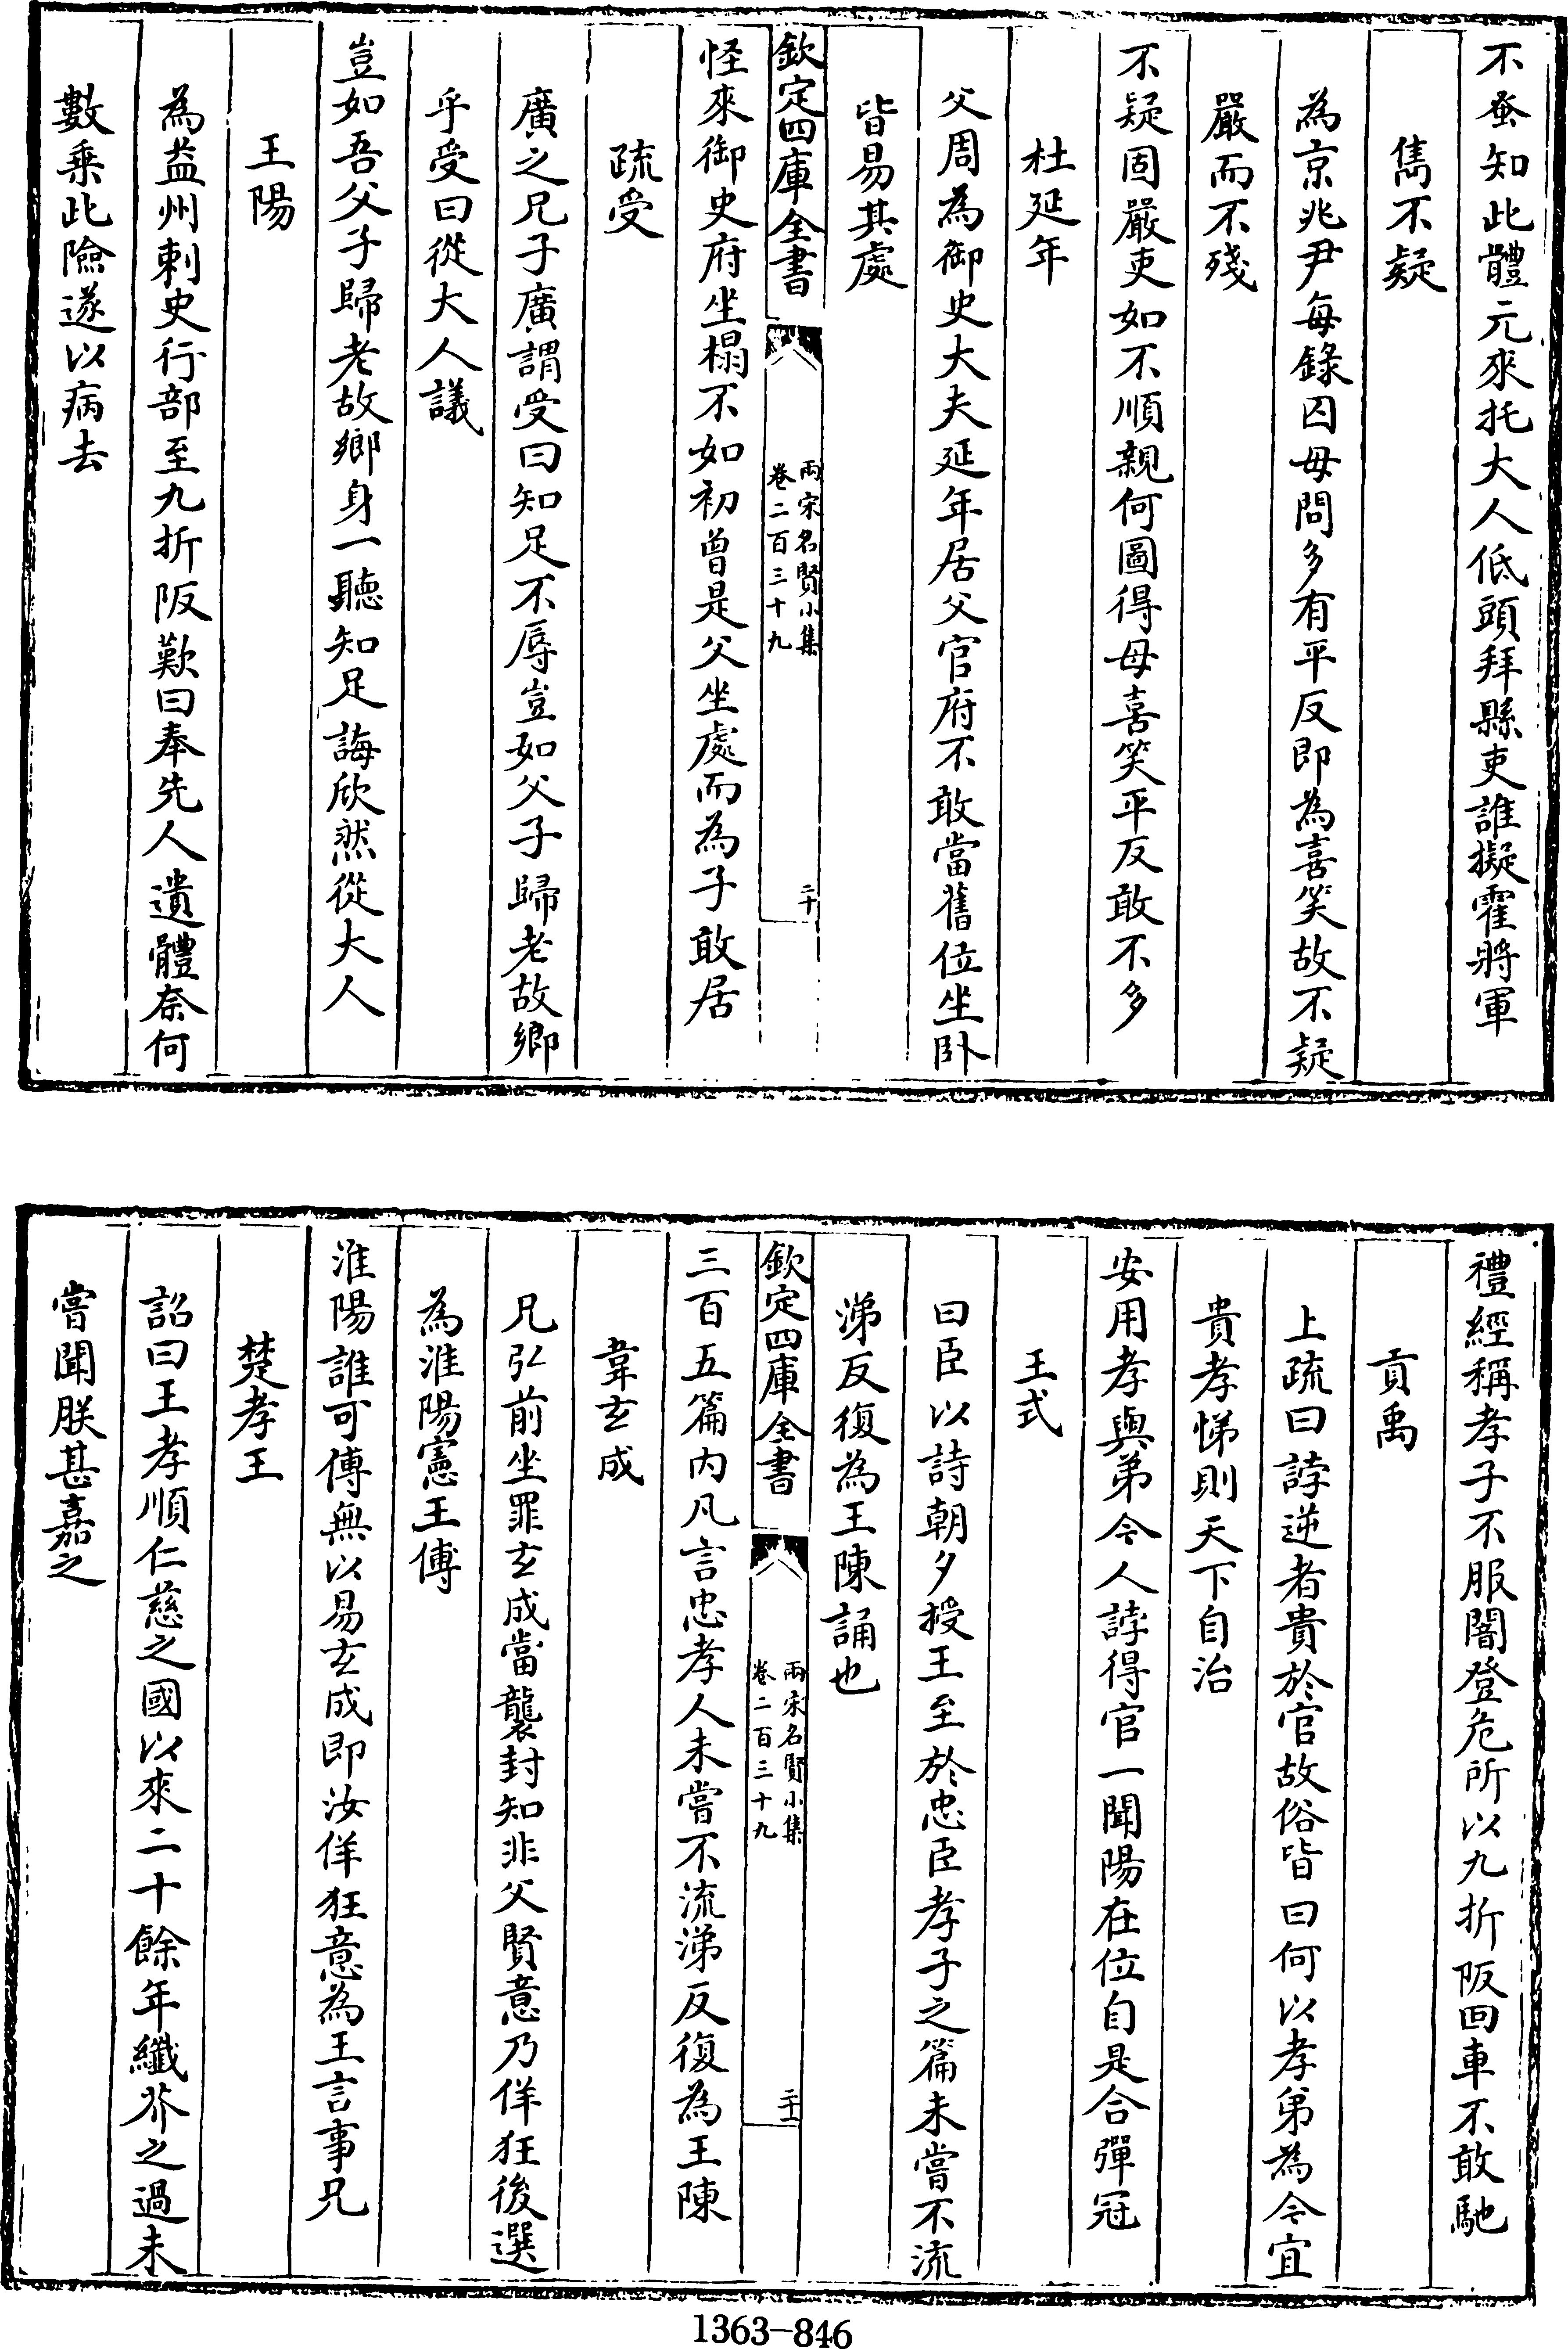 不蚤知此體元來托大人低頭拜縣吏誰擬霍將軍
雋不疑
為京兆尹每錄囚母問多有平反即為喜笑故不疑
嚴而不殘
不疑固嚴吏如不順親何圖得母喜笑平反敢不多
杜延年
父周為御史大夫延年居父官府不敢當舊位坐卧
皆易其處
欽定四庫全書
兩宋名賢小集
卷二百三十九
二十
怪來御史府坐榻不如初曾是父坐處而為子敢居
疏受
廣之兄子廣謂受曰知足不辱豈如父子歸老故鄉
乎受曰從大人議
豈如吾父子歸老故鄉身一聽知足誨欣然從大人
王陽
為益州刺史行部至九折阪歎曰奉先人遺體奈何
數乘此險遂以病去
禮經稱孝子不服闇登危所以九折阪回車不敢馳
貢禹
上疏曰誖逆者貴於官故俗皆曰何以孝弟為今宜
貴孝悌則天下自治
安用孝與弟今人誖得官一聞陽在位自是合彈冠
王式
曰臣以詩朝夕授王至於忠臣孝子之篇未嘗不流
涕反復為王陳誦也
欽定四庫全書
兩宋名賢小集
卷二百三十九
二十一
三百五篇内凡言忠孝人未嘗不流涕反復為王陳
韋玄成
兄弘前坐罪玄成當襲封知非父賢意乃佯狂後選
為淮陽憲王傅
淮陽誰可傅無以易玄成即汝佯狂意為王言事兄
楚孝王
詔曰王孝順仁慈之國以來二十餘年纖芥之過未
嘗聞朕甚嘉之
1363-846